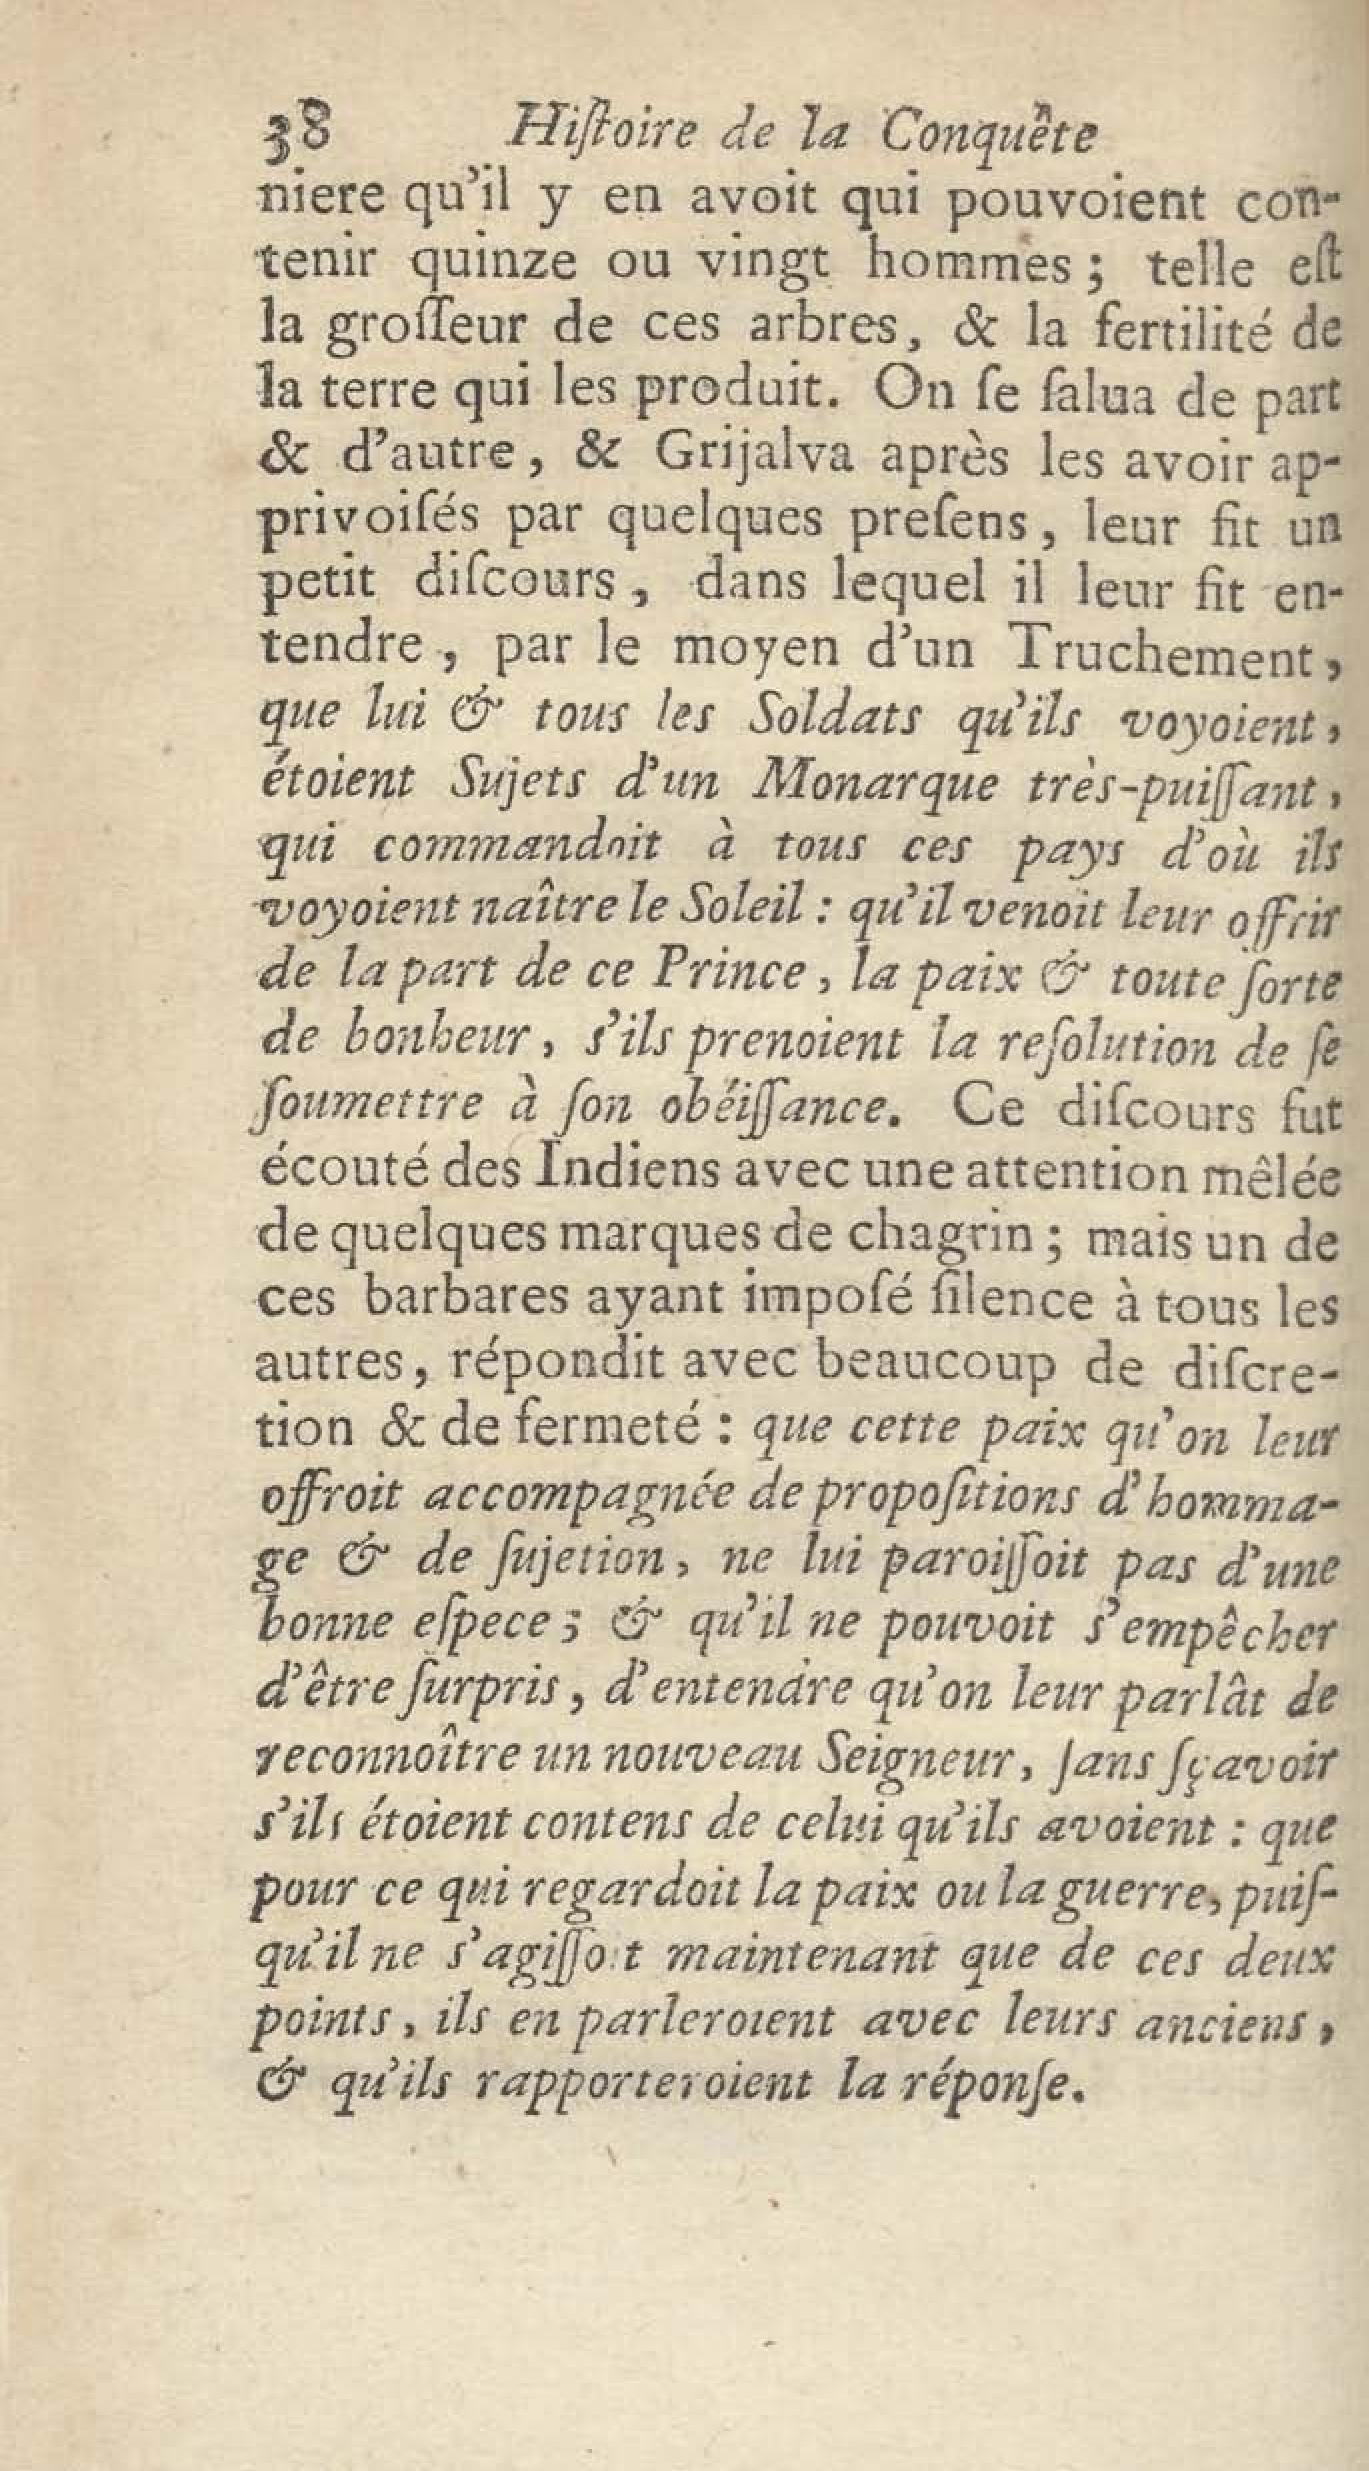 38 Hiſtoire de la Conquête
niere qu'il y en avoit qui pouvoient con-
tenir quinze ou vingt hommes ; telle eſt
la groſſeur de ces arbres, & la fertilité de
la terre qui les produit. On ſe ſalua de part
& d'autre, & Grijalva après les avoir ap-
privoiſés par quelques preſens, leur fit un
petit diſcours, dans lequel il leur fit en-
tendre, par le moyen d'un Truchement,
que lui & tous les Soldats qu'ils voyoient,
étoient Sujets d'un Monarque très-puiſſant,
qui commandoit à tous ces pays d'où ils
voyoient naître le Soleil : qu'il venoit leur offrir
de la part de ce Prince, la paix & toute ſorte
de bonheur, s'ils prenoient la reſolution de ſe
ſoumettre à ſon obéiſſance. Ce diſcours fut
écouté des Indiens avec une attention mêlée
de quelques marques de chagrin ; mais un de
ces barbares ayant impoſé ſilence à tous les
autres, répondit avec beaucoup de diſcre-
tion & de fermeté : que cette paix qu'on leur
offroit accompagnée de propoſitions d'homma-
ge & de ſujetion, ne lui paroiſſoit pas d'une
bonne eſpece ; & qu'il ne pouvoit s'empêcher
d'être ſurpris, d'entendre qu'on leur parlât de
reconnoître un nouveau Seigneur, ſans ſçavoir
s'ils étoient contens de celui qu'ils avoient : que
pour ce qui regardoit la paix ou la guerre, puiſ-
qu'il ne s'agiſſoit maintenant que de ces deux
points, ils en parleroient avec leurs anciens,
& qu'ils rapporteroient la réponſe.